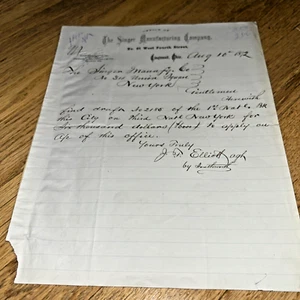 The Singer Manufacturing Company,
No. 61 West Fourth Street,
Aug 10 1872
The Singer Manufg Co
No 34 Union Square
New York
Gentlemen
Herewith
find draft No 2105 of the 1st Natl Bk
this City on third Natl New York for
Six thousand dollars to apply on
a/c of this office.
Yours Truly
J. D. Elliott agt
by